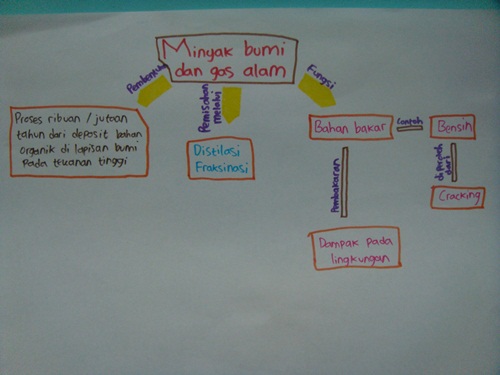 Minyak bumi
dan gas alam
Pembentukan
Pemisahan
melalui
Fungsi
Proses ribuan / jutaan
tahun dari deposit bahan
organik di lapisan bumi
pada tekanan tinggi
Distilasi
Fraksinasi
Bahan bakar
Contoh
Bensin
Pembakaran
diperoleh
dari
Cracking
Dampak pada
lingkungan